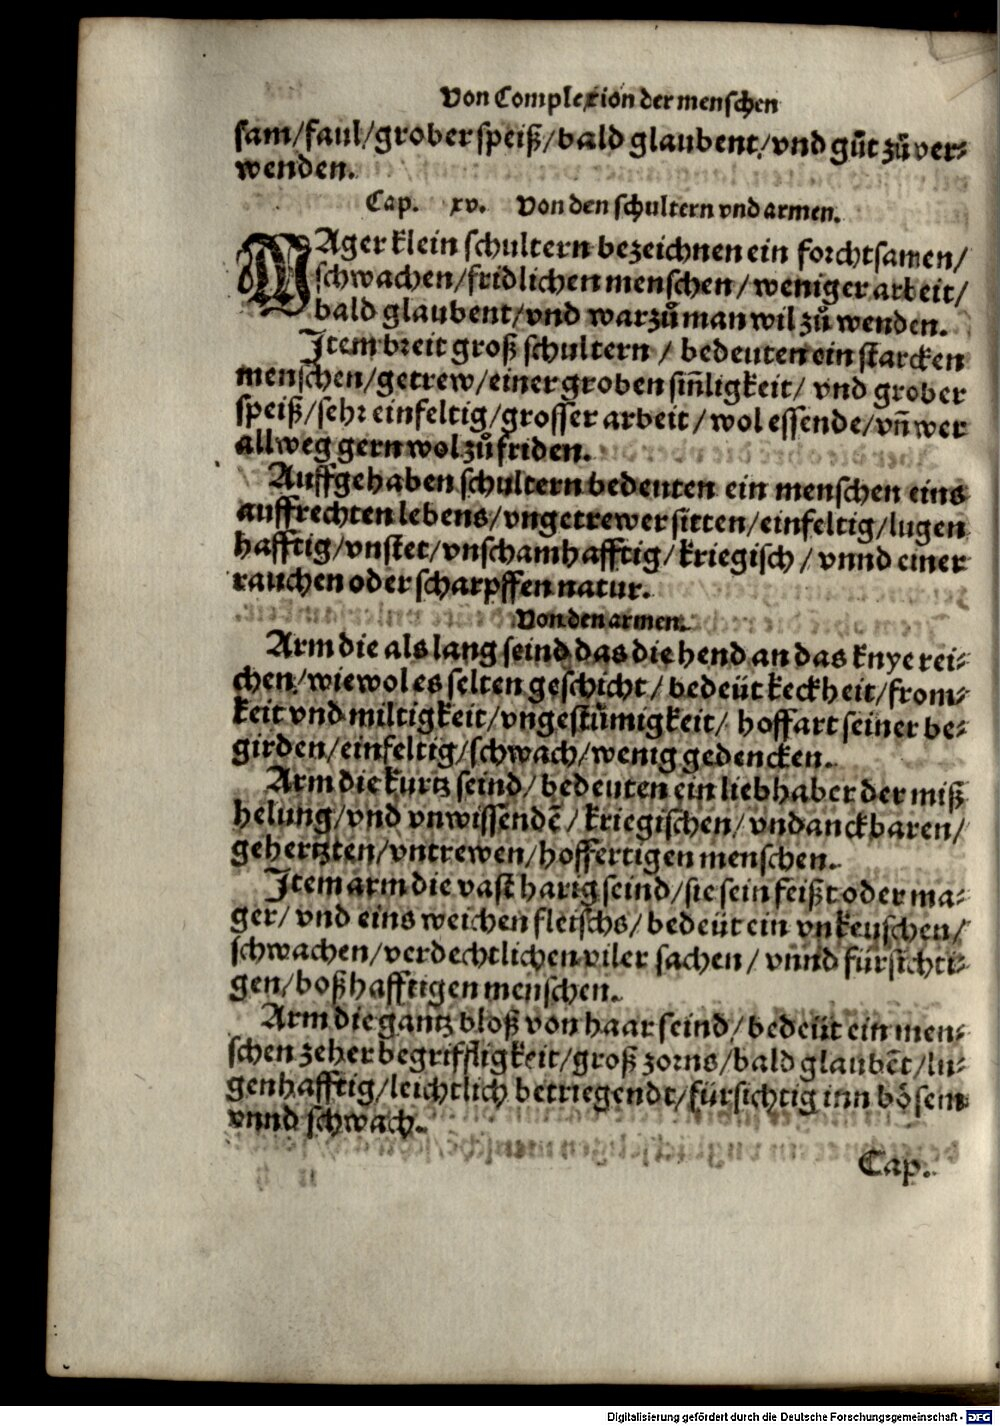 Von Complexion der menschen
sam/faul/grober speiß/bald glaubent/vnd gůt zůver⸗
wenden.
Cap. xv. Von den schultern vnd armen.
MAger klein schultern bezeichnen ein forchtsamen/
schwachen/fridlichen menschen/weniger arbeit/
bald glaubent/vnd warzů man wil zů wenden.
Item breit groß schultern/ bedeuten ein starcken
menschen/getrew/einer groben siñligkeit/ vnd grober
speiß/sehr einfeltig/grosser arbeit/wol essende/vñ wer
allweg gern wol zůfriden.
Auffgehaben schultern bedeuten ein menschen eins
auffrechten lebens/vngetrewer sitten/einfeltig/lugen
hafftig/vnstet/vnschamhafftig/kriegisch/vnnd einer
rauchen oder scharpffen natur.
Von den armen.
Arm die als lang seind das die hend an das knye rei⸗
chen/wiewol es selten geschicht/ bedeüt keckheit/from⸗
keit vnd miltigkeit/vngestümigkeit/ hoffart seiner be⸗
girden/einfeltig/schwach/wenig gedencken.
Arm die kurtz seind/bedeuten ein liebhaber der miß
helung/vnd vnwissendẽ/kriegischen/vndanckbaren/
gehertzten/vntrewen/hoffertigen menschen.
Item arm die vast harig seind/sie sein feißt oder ma⸗
ger/ vnd eins weichen fleischs/ bedeüt ein vnkeuschen/
schwachen/verdechtlichen viler sachen/ vnnd fürsichti⸗
gen/boßhafftigen menschen.
Arm die gantz bloß von haar seind/bedeüt ein men⸗
schen zeher begriffligkeit/groß zorns/bald glaubẽt/lu⸗
genhafftig/leichtlich betriegendt/fürsichtig inn bösem
vnnd schwach.
Cap.
Digitalisierung gefördert durch die Deutsche Forschungsgemeinschaft - DFG